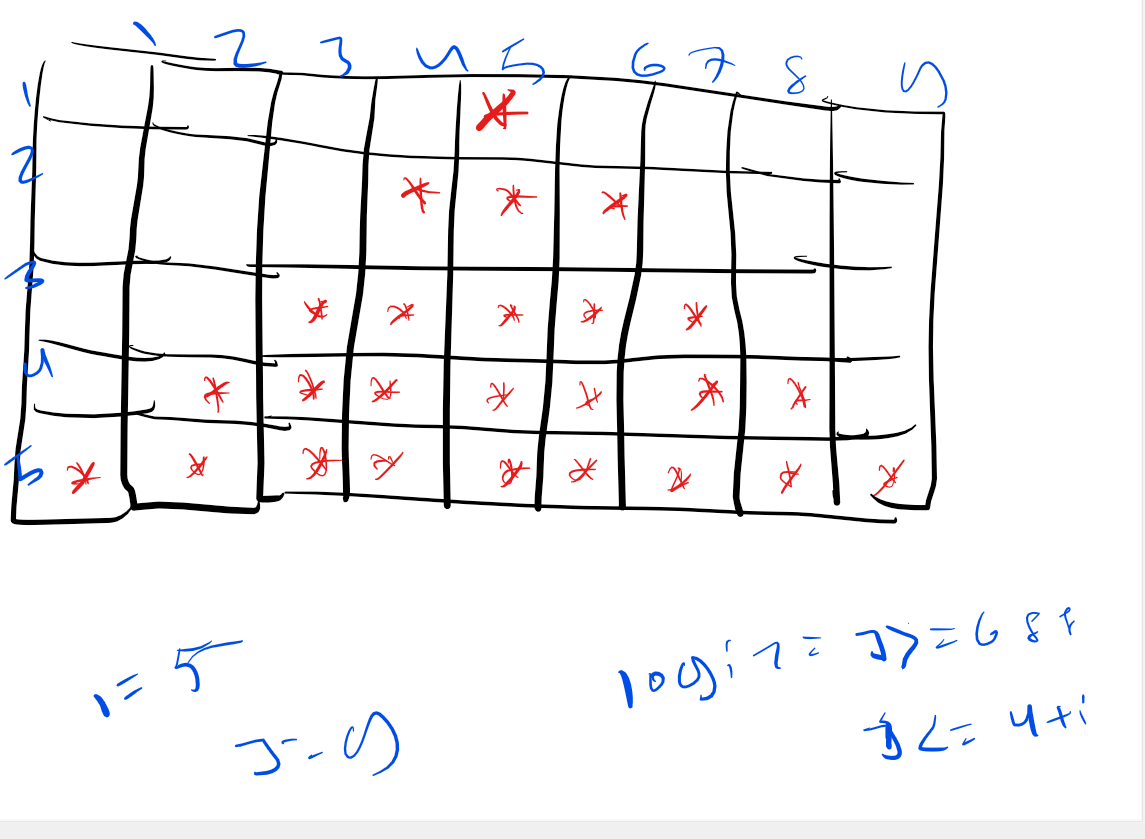 1 2 3 4 5 6 7 8 9
1 *
2 * * *
3 * * * * *
4 * * * * * * *
5 * * * * * * * * *
i = 5
J = 9
logic = J >= 6
J <= 4+i